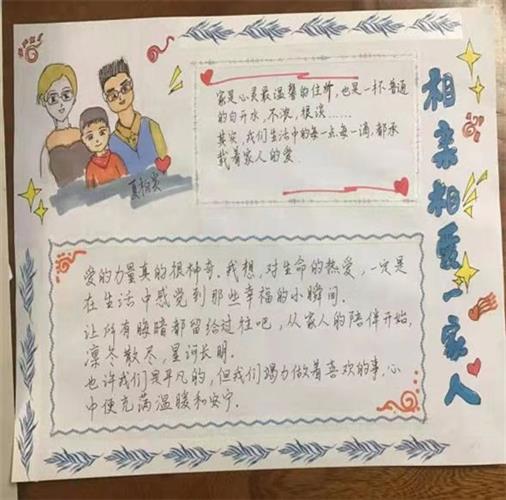 相亲相爱一家人
家是心灵最温馨的住所,也是一杯普通
的白开水,不浓,很淡……
其实,我们生活中的每一点每一滴,都承
载着家人的爱.
爱的力量真的很神奇.我想,对生命的热爱,一定是
在生活中感觉到那些幸福的小瞬间.
让所有晦暗都留给过往吧,从家人的陪伴开始,
凛冬散尽,星河长明.
也许我们是平凡的,但我们竭力做着喜欢的事,心
中便充满温暖和安宁.